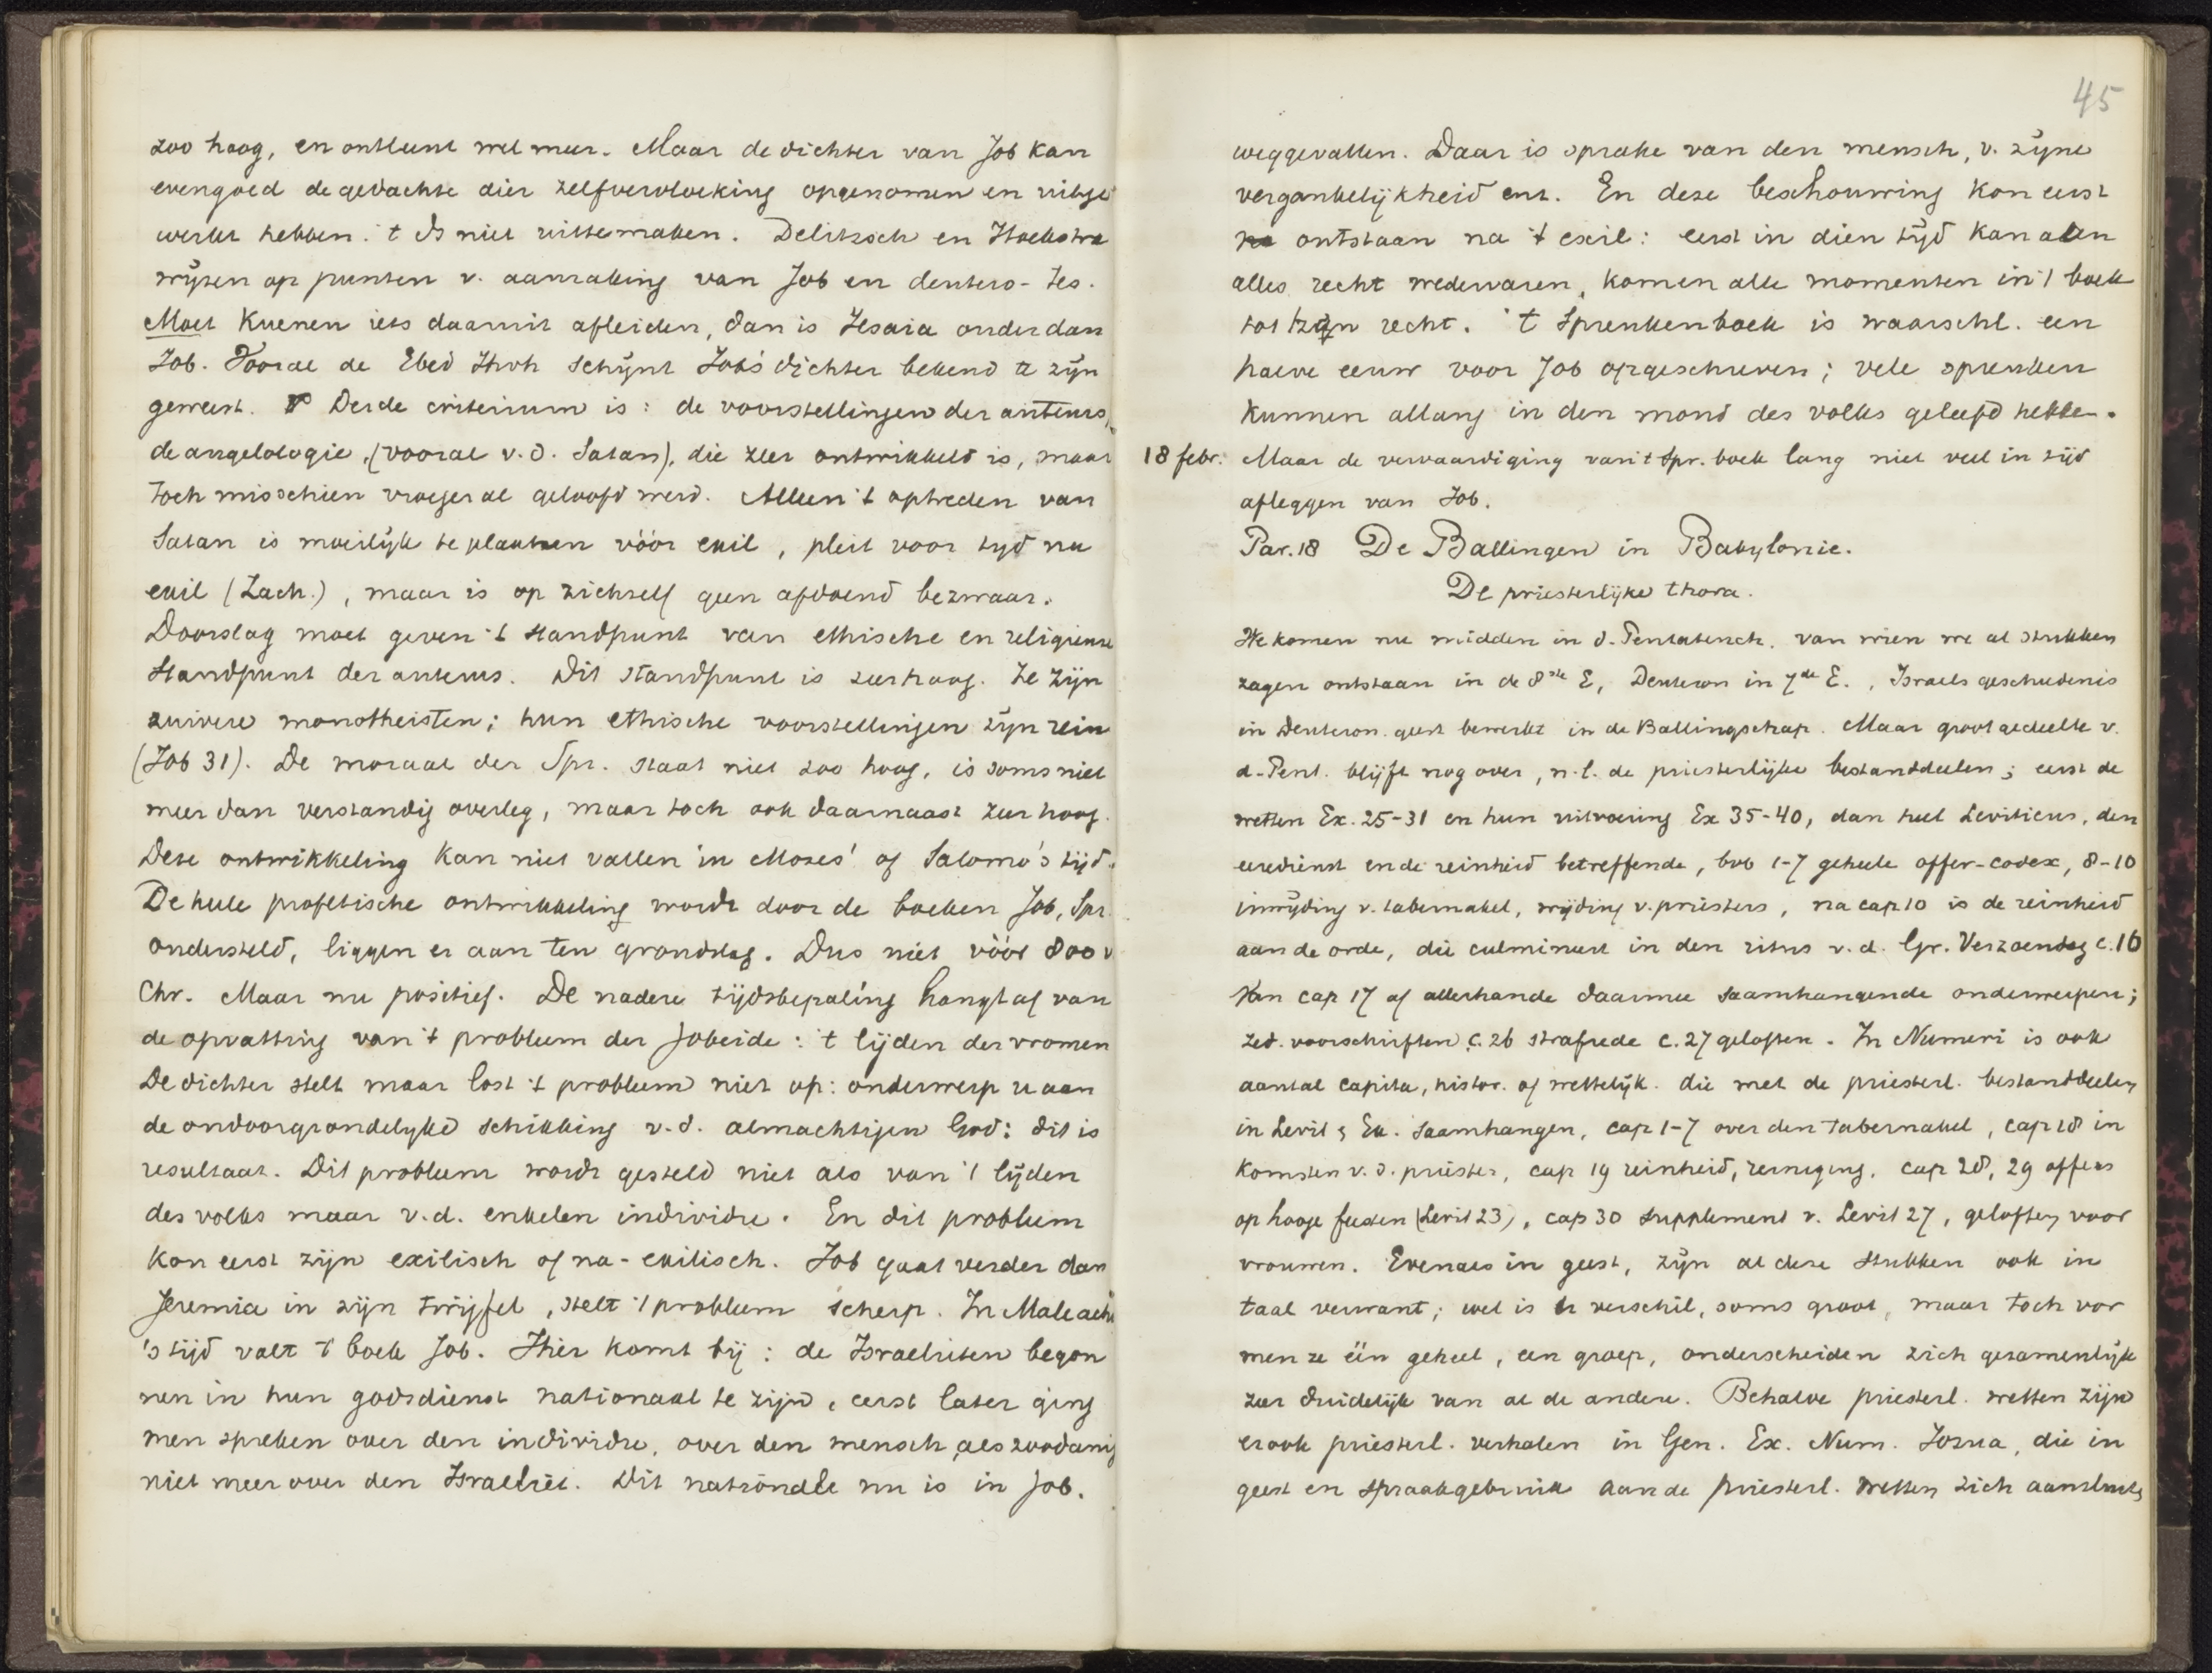 zoo hoog, en ontleent wel meer. Maar de dichter van Job kan
evengoed de gedachte dier zelfvervloeking opgenomen en uitge
werkt hebben. 't Is niet uittemaken. Delitzsch en Hoekstra
wijzen op punten v. aanraking van Job en deutero-Jes.
Moet Kuenen iets daaruit afleiden, dan is Jesaia ouder dan
Job. Vooral de Ebed Jhvh schijnt Jobs dichter bekend te zijn
geweest. Derde criterium is: de voorstellingen der auteurs,
de angelologie, (vooral v.d. Satan), die zeer ontwikkeld is, maar
toch misschien vroeger al geloofd werd. Alleen 't optreden van
Satan is moeilijk te plaatsen vóór exil, pleit voor tijd na
exil (Zach.), maar is op zichzelf geen afdoend bezwaar.
Doorslag moet geven 't standpunt van ethische en religieuse
standpunt der auteurs. Dit standpunt is zeer hoog. Ze zijn
zuivere monotheisten; hun ethische voorstellingen zijn rein
(Job 31). De moraal der Spr. staat niet zoo hoog, is soms niet
meer dan verstandig overleg, maar toch ook daarnaast zeer hoog.
Deze ontwikkeling kan niet vallen in Mozes' of Salomo's tijd.
De heele profetische ontwikkeling wordt door de boeken Job, Spr.
ondersteld, liggen er aan ten grondslag. Dus niet vóór 800 v
Chr. Maar nu positief. De nadere tijdsbepaling hangt af van
de opvatting van 't probleem der Jobeide: 't lijden der vromen
De dichter stelt maar lost 't probleem niet op: onderwerp u aan
de ondoorgrondelijke schikking v.d. almachtigen God: dit is
resultaat. Dit probleem wordt gesteld niet als van 't lijden
des volks maar v.d. enkelen individu. En dit probleem
kon eerst zijn exilisch of na-exilisch. Job gaat verder dan
Jeremia in zijn twijfel, stelt 't probleem scherp. In Maleachi
's tijd valt 't boek Job. Hier komt bij: de Israelieten begon
nen in hun godsdienst nationaal te zijn, eerst later ging
men spreken over den individu, over den mensch als zoodanig
niet meer over den Israeliet. Dit nationale nu is in Job.
45
weggevallen. Daar is sprake van den mensch, v. zijne
vergankelijkheid enz. En deze beschouwing kon eerst
ontstaan na 't exil: eerst in dien tijd kan aan
alles recht wedervaren, komen alle momenten in 't boek
tot zijn recht. 't Spreukenboek is waarschl. een
halve eeuw voor Job opgeschreven; vele spreuken
kunnen allang in den mond des volks geleefd hebben.
18 febr. Maar de vervaardiging van 't Spr. boek lang niet veel in tijd
afleggen van Job.
Par. 18 De Ballingen in Babylonie.
De priesterlijke thora.
We komen nu midden in d. Pentateuch. van wien we al stukken
zagen ontstaan in de 8ste E, Deuteron in 7de E., Israels geschiedenis
in Deuteron. geest bewerkt in de Ballingschap. Maar groot gedeelte v.
d. Pent. blijft nog over, n.l. de priesterlijke bestanddeelen; eerst de
wetten Ex. 25-31 en hun uitvoering Ex 35-40, dan heel Leviticus, den
eredienst en de reinheid betreffende, bvb 1-7 geheele offer-codex, 8-10
inwijding v. tabernakel, wijding v. priesters, na cap. 10 is de reinheid
aan de orde, die culmineert in den ritus v.d. Gr. Verzoendag c. 16
Van cap 17 af allerhande daarmee saamhangende onderwerpen;
zed. voorschriften c. 26 strafrede c. 27 geloften. In Numeri is ook
aantal capita, histor. of wettelijk. die met de priesterl. bestanddeelen
in Levit & Ex. saamhangen, cap 1-7 over den tabernakel, cap 18 in
komsten v.d. priester, cap 19 reinheid, reiniging. cap 28, 29 offers
op hooge feesten (Levit 23), cap 30 supplement v. Levit 27, geloften voor
vrouwen. Evenals in geest, zijn al deze stukken ook in
taal verwant; wel is er verschil, soms groot, maar toch vor
men ze één geheel, een groep, onderscheiden zich gezamenlijk
zeer duidelijk van al de andere. Behalve priesterl. wetten zijn
er ook priesterl. verhalen in Gen. Ex. Num. Jozua, die in
geest en spraakgebruik aan de priesterl. wetten zich aansluiten